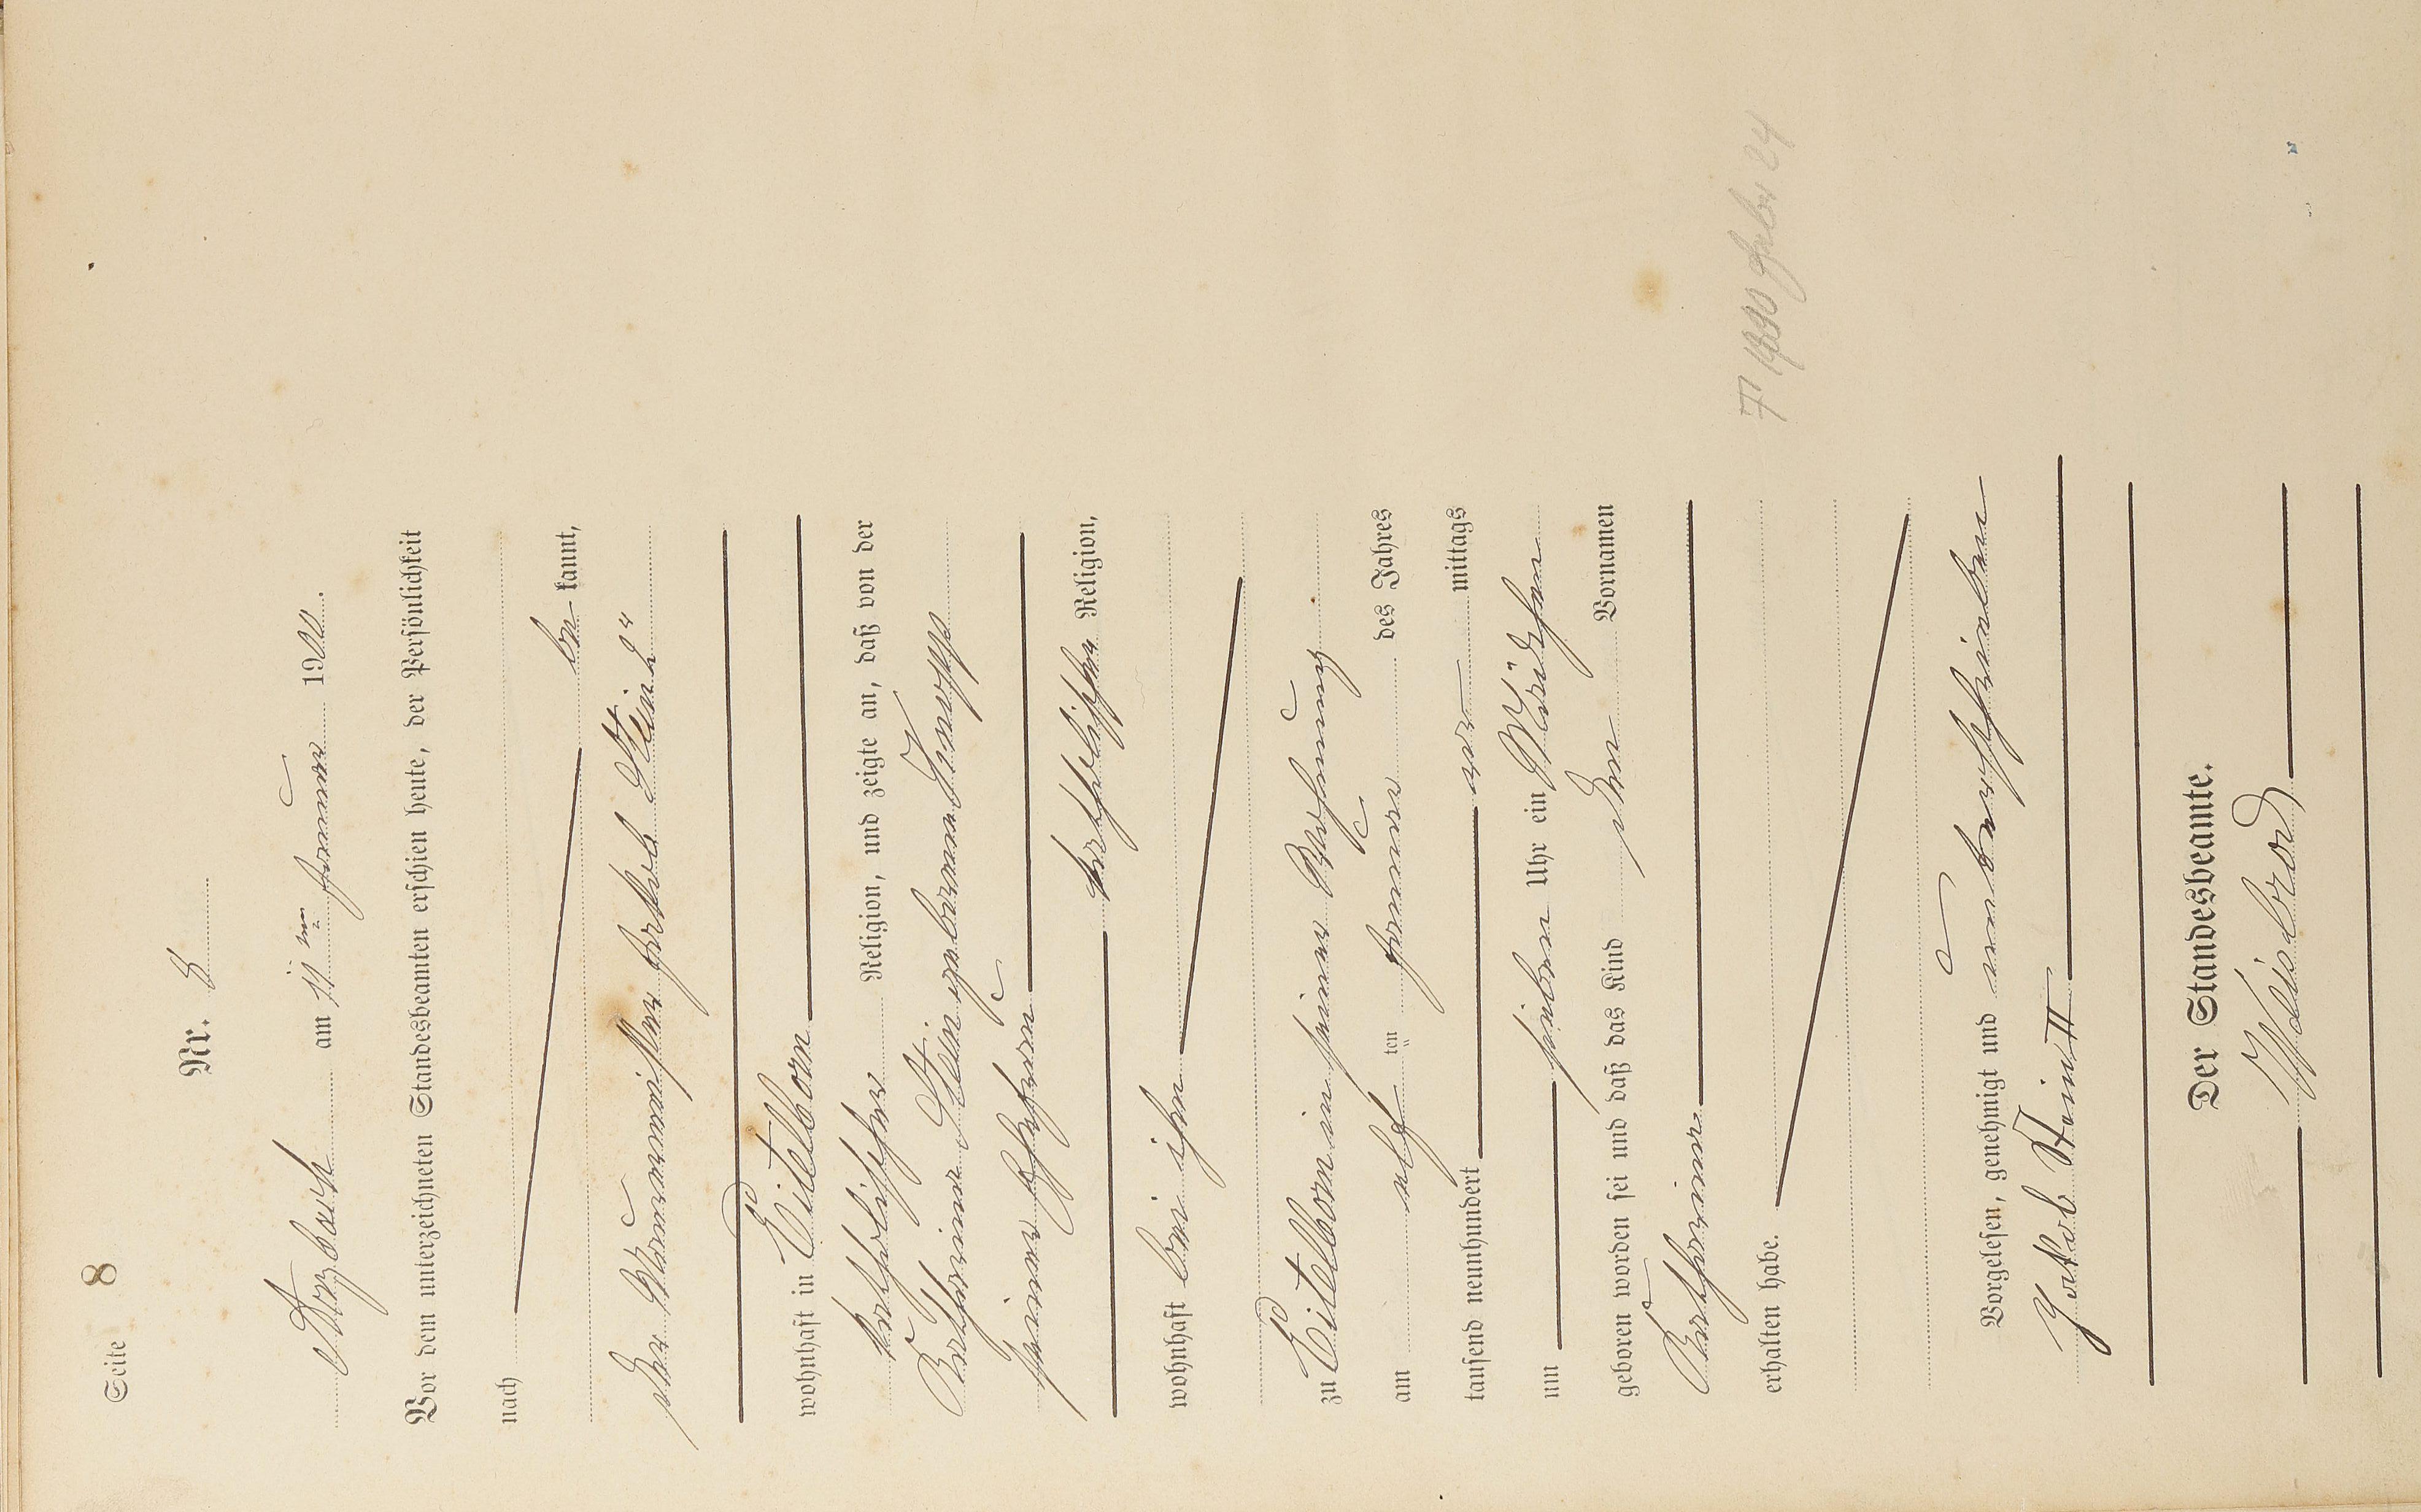 Seite 8
Nr. 8
Arzbach am 11ten Januar 1900.
Vor dem unterzeichneten Standesbeamten erschien heute, der Persönlichkeit
nach
be kannt,
der Maurermeister Jakob Stein 2r
wohnhaft in Eitelborn
katholischer Religion, und zeigte an, daß von der
Katharina Stein geborenen Knopp
seiner Ehefrau
katholischer Religion,
wohnhaft bei ihm
zu Eitelborn in seiner Wohnung
am elf ten Januar des Jahres
tausend neunhundert vor mittags
um sieben Uhr ein Mädchen
geboren worden sei und daß das Kind den Vornamen
Katharina
erhalten habe.
Vorgelesen, genehmigt und unterschrieben
Jakob Stein II
Der Standesbeamte.
Weisbrod